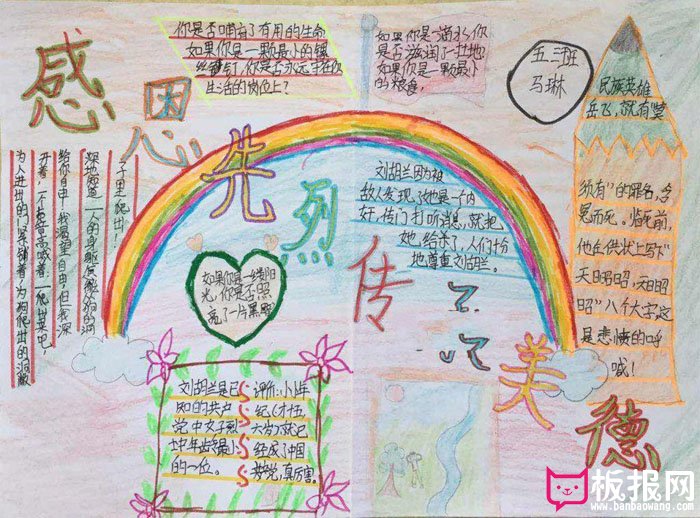 感恩先烈
传
美德
你是否哺育了有用的生命
如果你是一颗最小的螺
丝钉,你是否永远守在你
生活的岗位上?
如果你是一滴水,你
是否滋润了一寸土地
如果你是一颗最小
的粮食,
五三班
马琳
民族英雄
岳飞,就有"莫
须有"的罪名,含
冤而死。临死前,
他在供状上写下"
天日昭昭,天日昭
昭"八个大字,这
是悲愤的呼
喊!
为人进出的门紧锁着,为狗爬出的洞敞
开着,一个声音高喊着,爬出来吧,
给你自由!我渴望自由,但我深
深地知道,人的身躯怎能从狗的洞
子里爬出!
刘胡兰因为被
敌人发现了她是一个内
奸,传门打听消息,就把
她给杀了,人们十分
地尊重刘胡兰.
如果你是一缕阳
光,你是否照
亮了一片黑暗
刘胡兰是已
知的共产
党中女子烈
士中年龄最小
的一位。
评价:小小年
纪(才十五
六岁)就已
经成了中国
共党,真厉害。
板报网
www.banbaowang.com